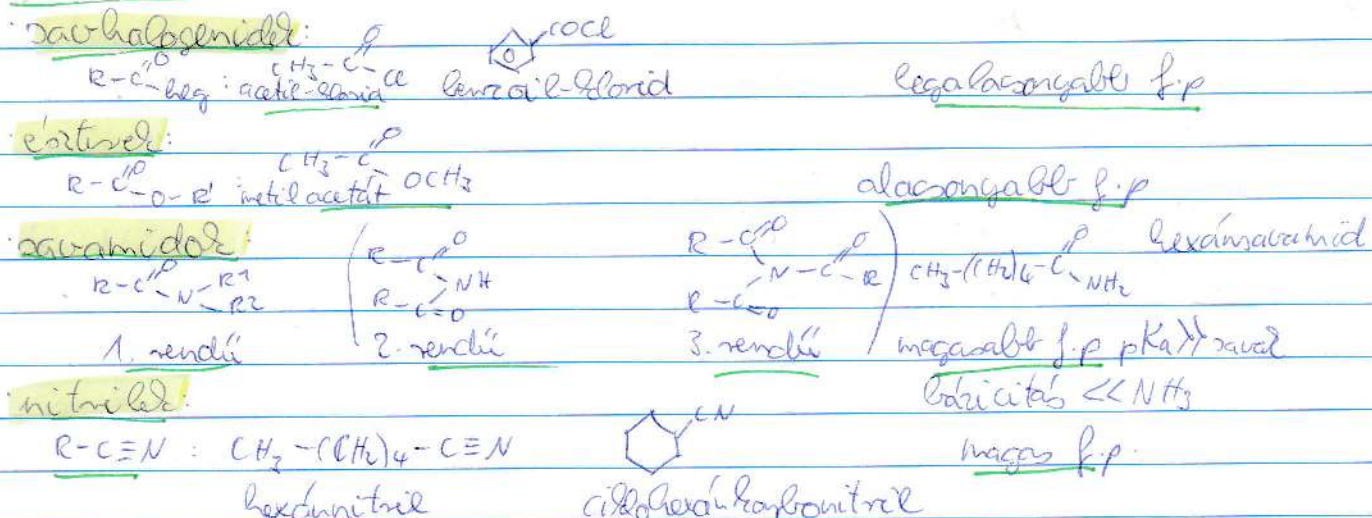 savhalogenidek:
R-C(=O)-hlg : CH3-C(=O)-Cl acetil-klorid COCl benzoil-klorid legalacsonyabb f.p
észterek:
R-C(=O)-O-R' CH3-C(=O)-OCH3 metil acetát alacsonyabb f.p
savamidok:
R-C(=O)-N(R1)(R2) (R-C(=O)-NH-C(=O)-R R-C(=O)-N(-C(=O)-R)-C(=O)-R) CH3-(CH2)4-C(=O)-NH2 hexánsavamid
1. rendű 2. rendű 3. rendű magasabb f.p pKa >> savak
bázicitás << NH3
nitrilek:
R-C≡N : CH3-(CH2)4-C≡N CN magas f.p.
hexánnitril ciklohexánkarbonitril